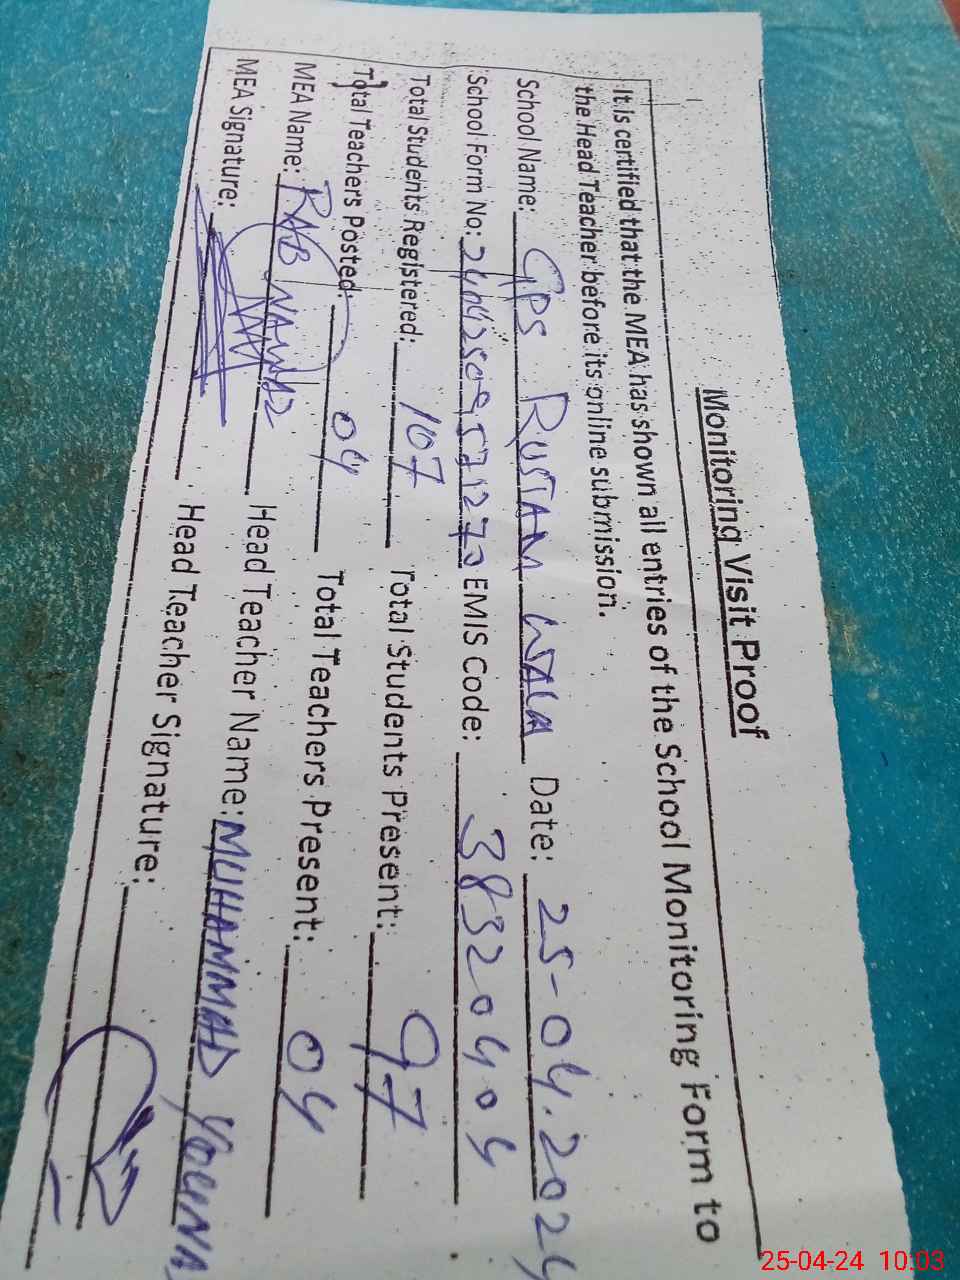 Monitoring Visit Proof
It is certified that the MEA has shown all entries of the School Monitoring Form to
the Head Teacher before its online submission.
School Name: GPS RUSTAM WALA Date: 25-04.2024
School Form No: EMIS Code: 38320404
Total Students Registered: 107 Total Students Present: 97
Total Teachers Posted: 04 Total Teachers Present: 04
MEA Name: RAB NAWAZ Head Teacher Name: MUHAMMAD
MEA Signature: Head Teacher Signature:
25-04-24 10:03